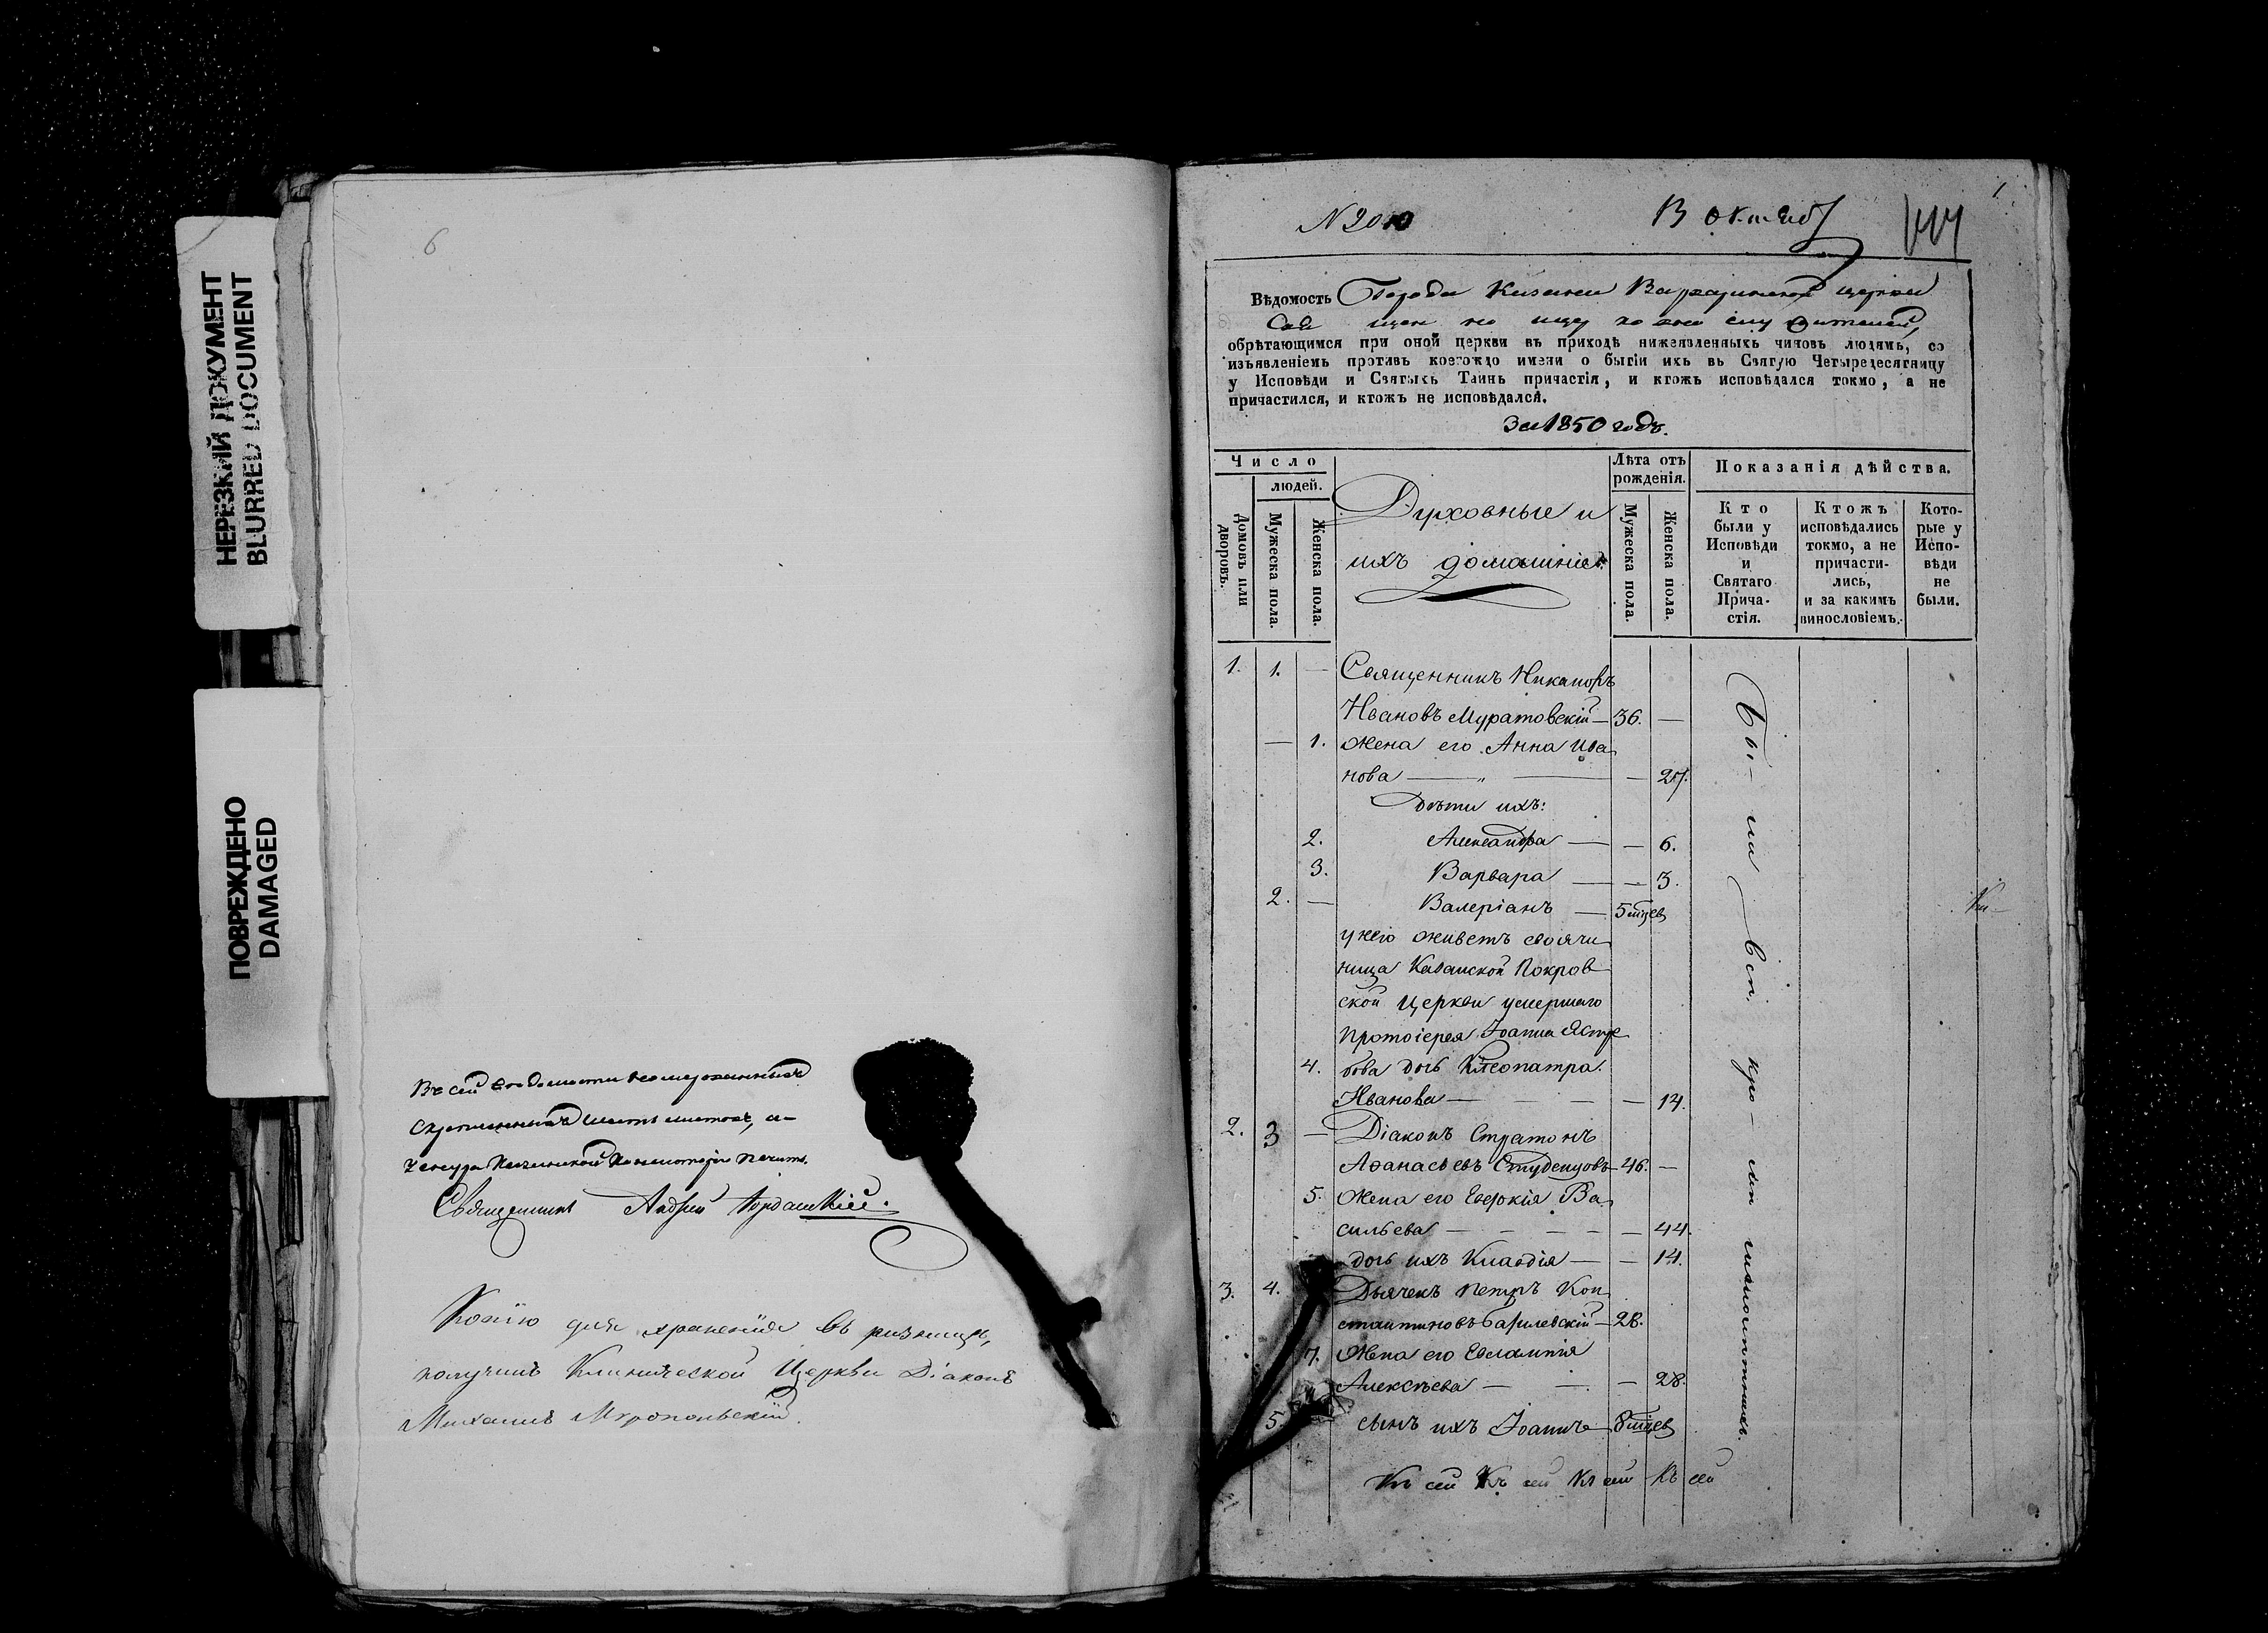 НЕРЕЗКИЙ ДОКУМЕНТ
BLURRED DOCUMENT
ПОВРЕЖДЕНО
DAMAGED
6
Въ сей ведомости
листовъ, и
Казанской Консисторіи печать.
Священникъ Андрей
Копію для храненія въ ризницѣ,
получилъ Клинической Церкви Діаконъ
Михаилъ
1
В Октяб
Вѣдомость Города Казани Варваринской церкви
обрѣтающимся при оной церкви въ приходѣ нижеявленныхъ чиновъ людямъ, со
изъявленіемъ противъ коегождо имени о бытіи ихъ въ Святую Четыредесятницу
у Исповѣди и Святыхъ Таинъ причастія, и ктожъ исповѣдался токмо, а не
причастился, и ктожъ не исповѣдался.
За 1850 годъ.
Число
людей.
Домовъ или дворовъ.
Мужеска пола.
Женска пола.
Духовные и
ихъ домашніе.
Лѣта отъ рожденія.
Мужеска пола.
Женска пола.
Показанія дѣйства.
Кто были у Исповѣди и Святаго Причастія.
Ктожъ исповѣдались токмо, а не причастились, и за какимъ винословіемъ.
Которые у Исповѣди не были.
1. 1. — Священникъ Никаноръ
Ивановъ Муратовскій — 36. —
— 1. жена его Анна Ива
нова — „ — — 27.
Дѣти ихъ:
2. Александра — — 6.
3. Варвара — — 3.
2. — Валеріанъ — 5 мцев
у него живетъ своячи
ница Казанской Покров
ской Церкви умершаго
Протоіерея Іоанна Ястре
4. бова дочь Клеопатра
Иванова — — — — 14.
2. 3 — Діаконъ Стратонъ
Аѳанасьевъ Студенцовъ — 46. —
5. Жена его Евдокія Ва
сильева — — — — — 44.
дочь ихъ Клавдія — — 14.
3. 4. Дьячекъ Петръ Кон
стантиновъ — 28.
7. Жена его Евлампія
Алексѣева — — — 28.
5. сынъ ихъ Іоаннъ 8 мцев
Къ сей Къ сей Къ сей Къ сей
Бы-ли всѣ, кро-мѣ малолѣтнихъ.